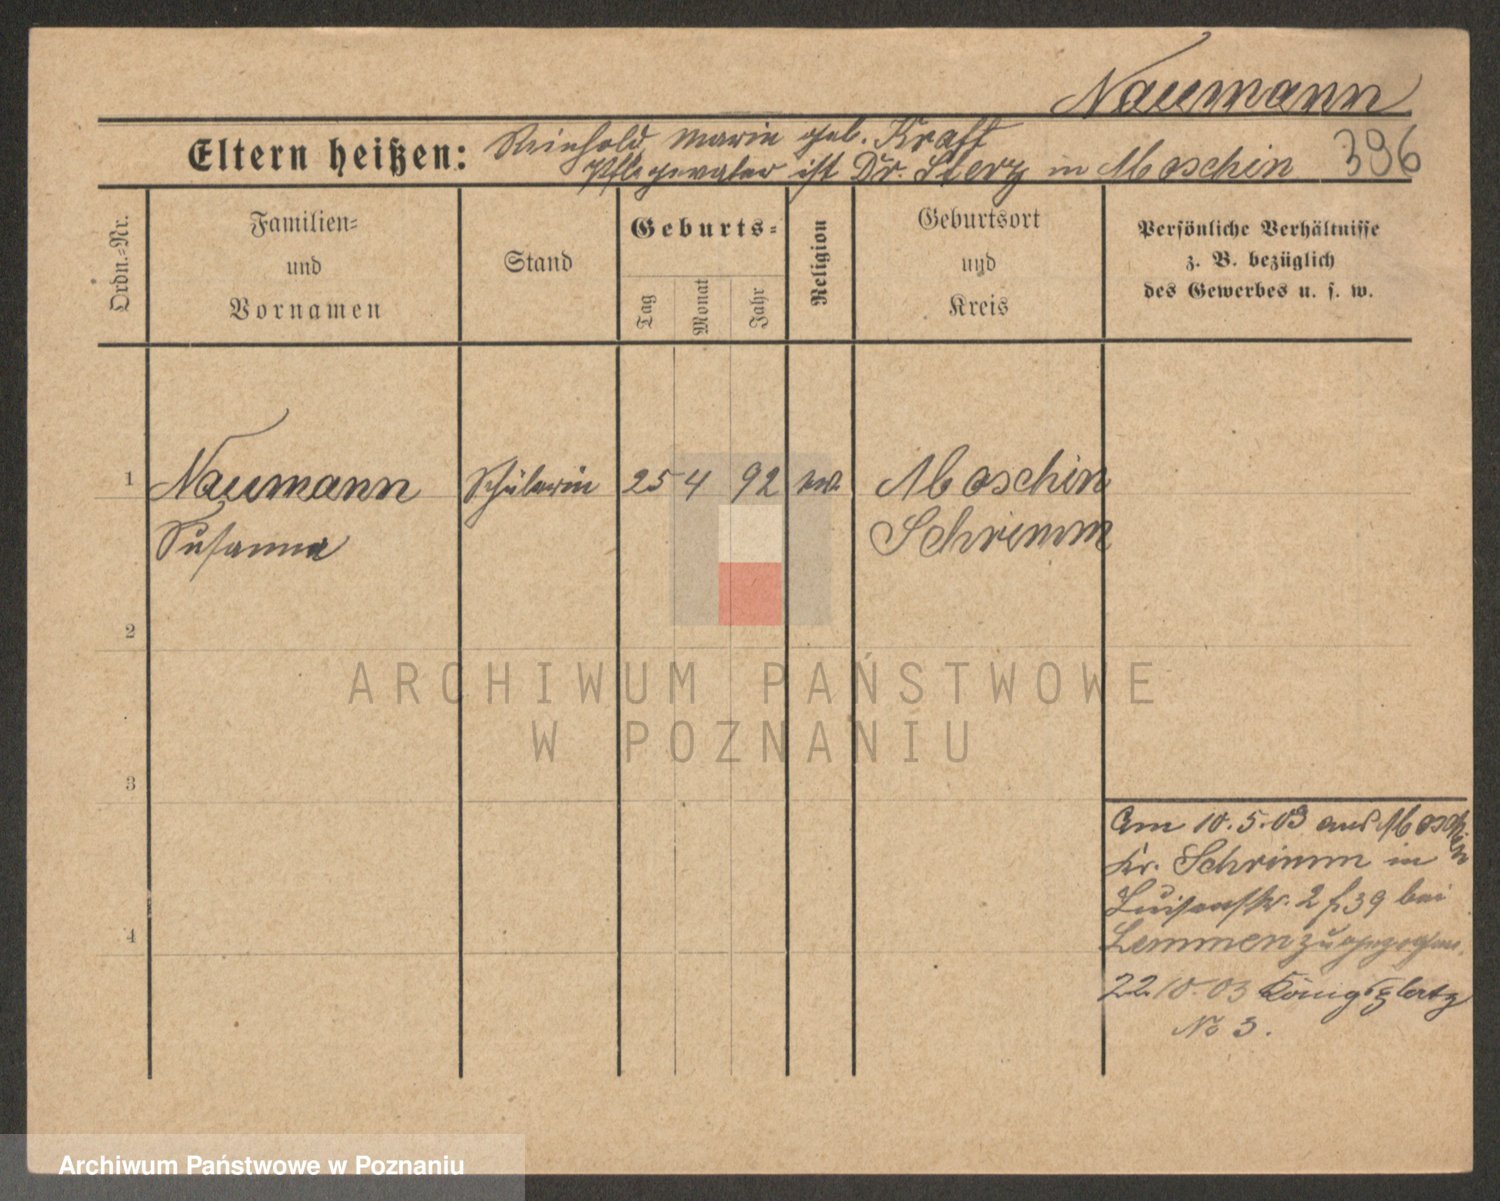 Naumann
Eltern heißen: Reinhold Marie geb. Kraft
Pflegevater ist Dr. Sterz in Moschin 396
Ordn.-Nr.
Familien-
und
Vornamen
Stand
Geburts-
Tag
Monat
Jahr
Religion
Geburtsort
und
Kreis
Persönliche Verhältnisse
z. B. bezüglich
des Gewerbes u. s. w.
1 Naumann Schülerin 25 4 92 ev. Moschin
Susanna Schrimm
2
ARCHIWUM PAŃSTWOWE
W POZNANIU
3
Am 10.5.03 aus Moschin
Kr. Schrimm in
Luisenstr. 2 f 39 bei
4
Lemmen zugezogen.
22.10.03 Königsplatz
No 3.
Archiwum Państwowe w Poznaniu